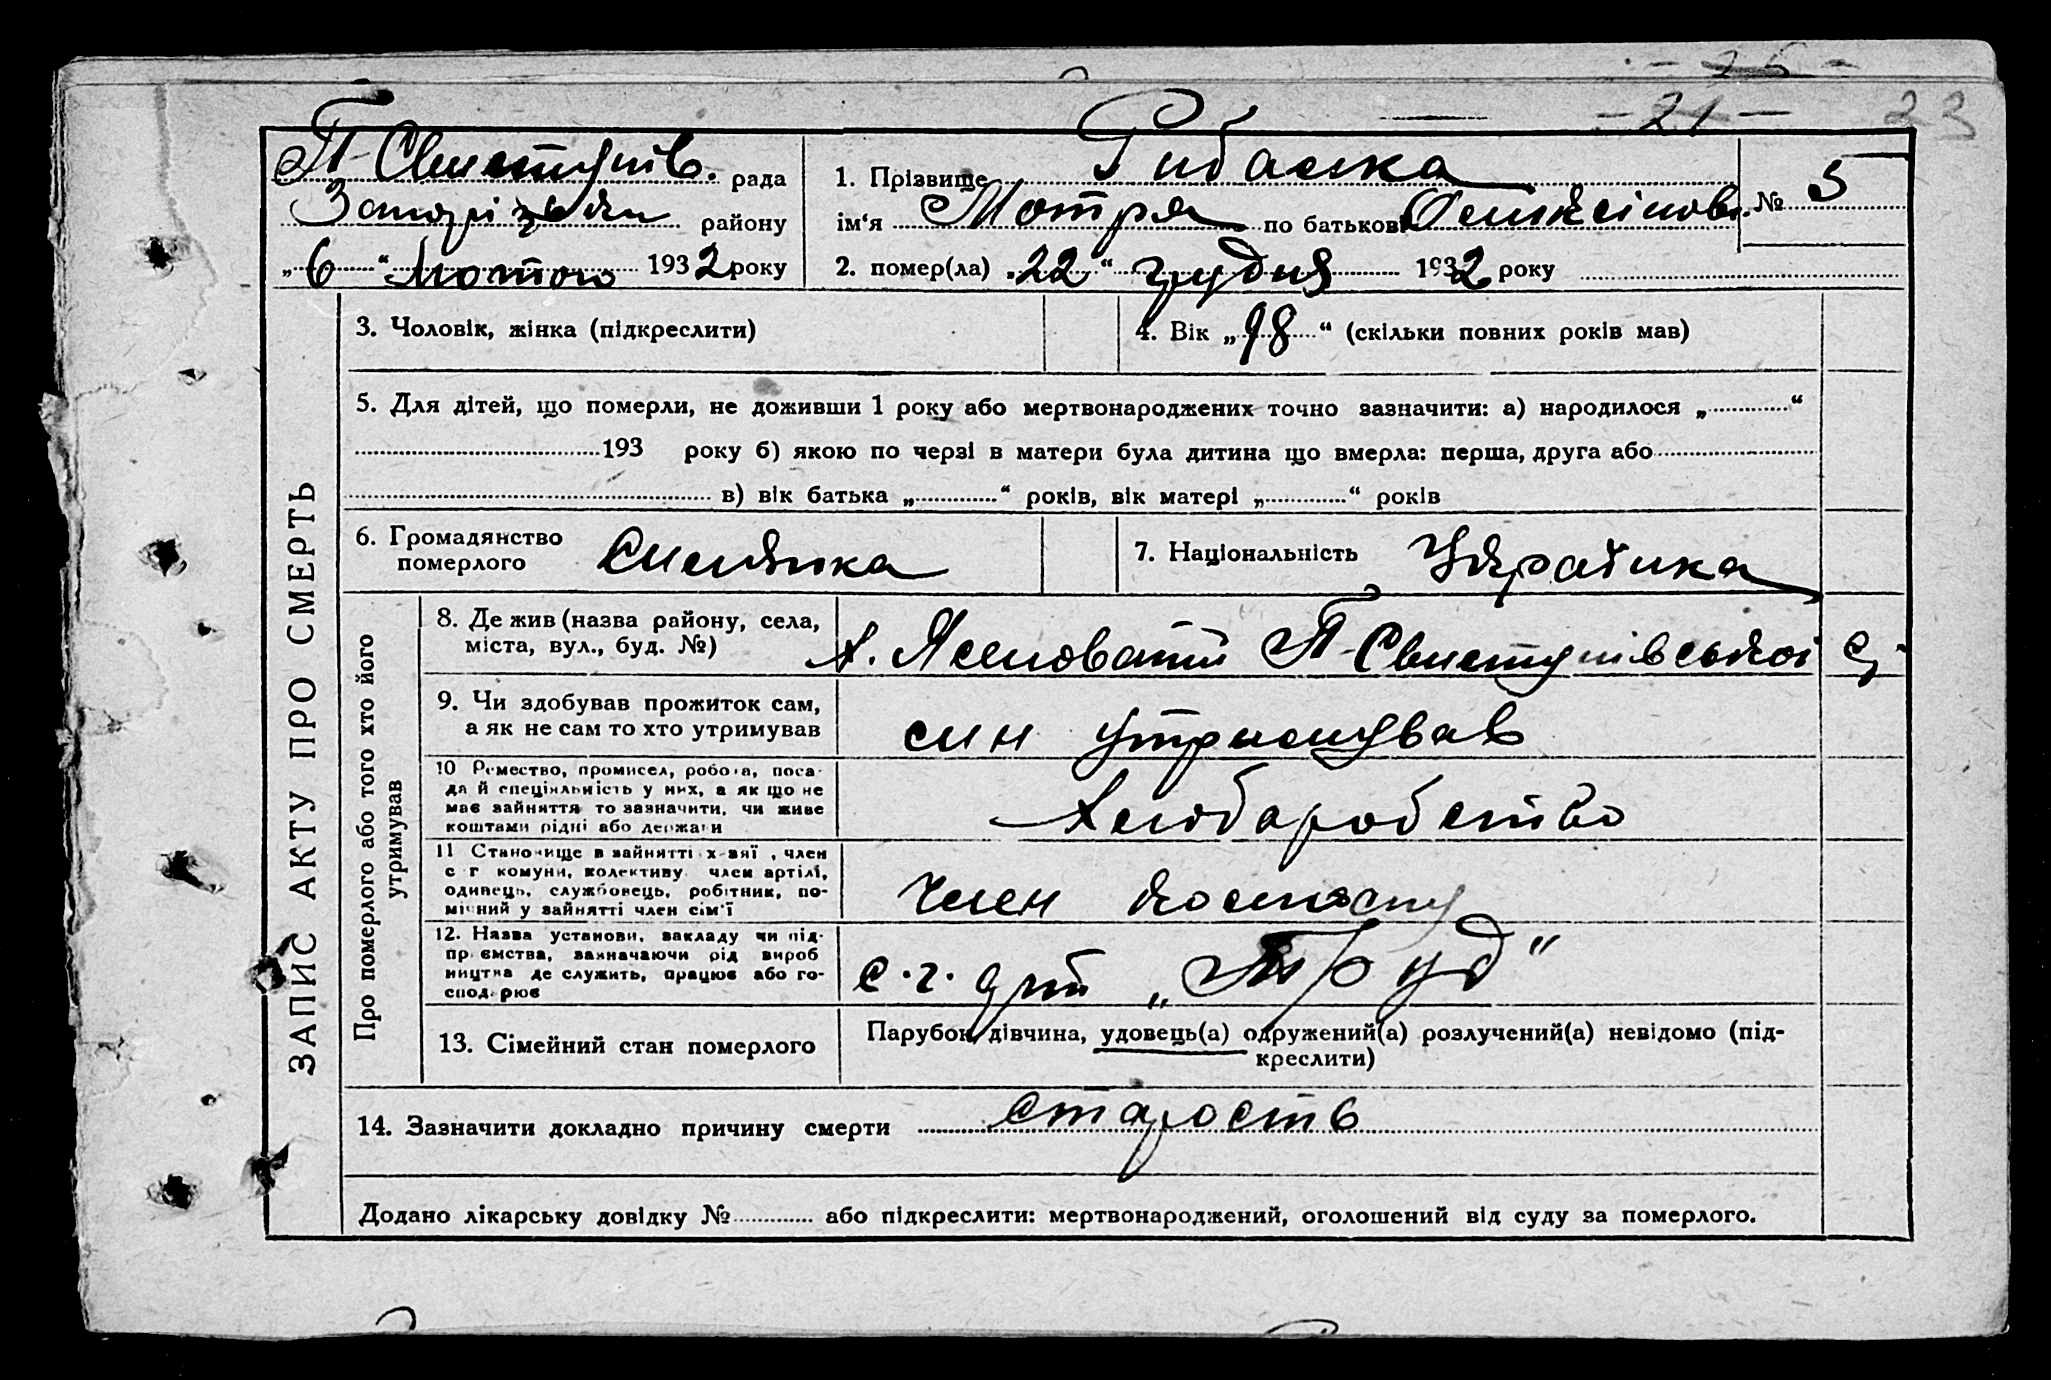 - 21 - 23
П-Свистунів. рада
Запорізьки району
„6“ Лютого 1932 року
1. Прізвище Рибалка
ім‘я Мотря по батькові
№ 5
2. помер(ла) „22“ грудня 1932 року
ЗАПИС АКТУ ПРО СМЕРТЬ
3. Чоловік, жінка (підкреслити)
4. Вік „98“ (скільки повних років мав)
5. Для дітей, що померли, не доживши 1 року або мертвонароджених точно зазначити: а) народилося „ “
193 року б) якою по черзі в матери була дитина що вмерла: перша, друга або
в) вік батька „ “ років, вік матері „ “ років
6. Громадянство
померлого Силянка
7. Національність Українка
Про померлого або того хто його
утримував
8. Де жив (назва району, села,
міста, вул., буд. №)
х. П-Свистунівської с/
9. Чи здобував прожиток сам,
а як не сам то хто утримував
син утримував
10 Ремество, промисел, робота, поса-
да й спеціяльність у них, а як що не
має зайняття то зазначити, чи живе
коштами рідні або держави
Хлюбаробство
11 Становище в зайнятті х-вяї, член
с г комуни, колективу член артілі,
одинець, службовець, робітник, по-
мічний у зайнятті член сім'ї
член колхоспу
12. Назва установи, закладу чи під-
приємства, зазначаючи рід вироб
ництва де служить, працює або го-
сподарює
с.г. арт „Труд“
13. Сімейний стан померлого
Парубок, дівчина, удовець(а) одружений(а) розлучений(а) невідомо (під-
креслити)
14. Зазначити докладно причину смерти старость
Додано лікарську довідку № або підкреслити: мертвонароджений, оголошений від суду за померлого.